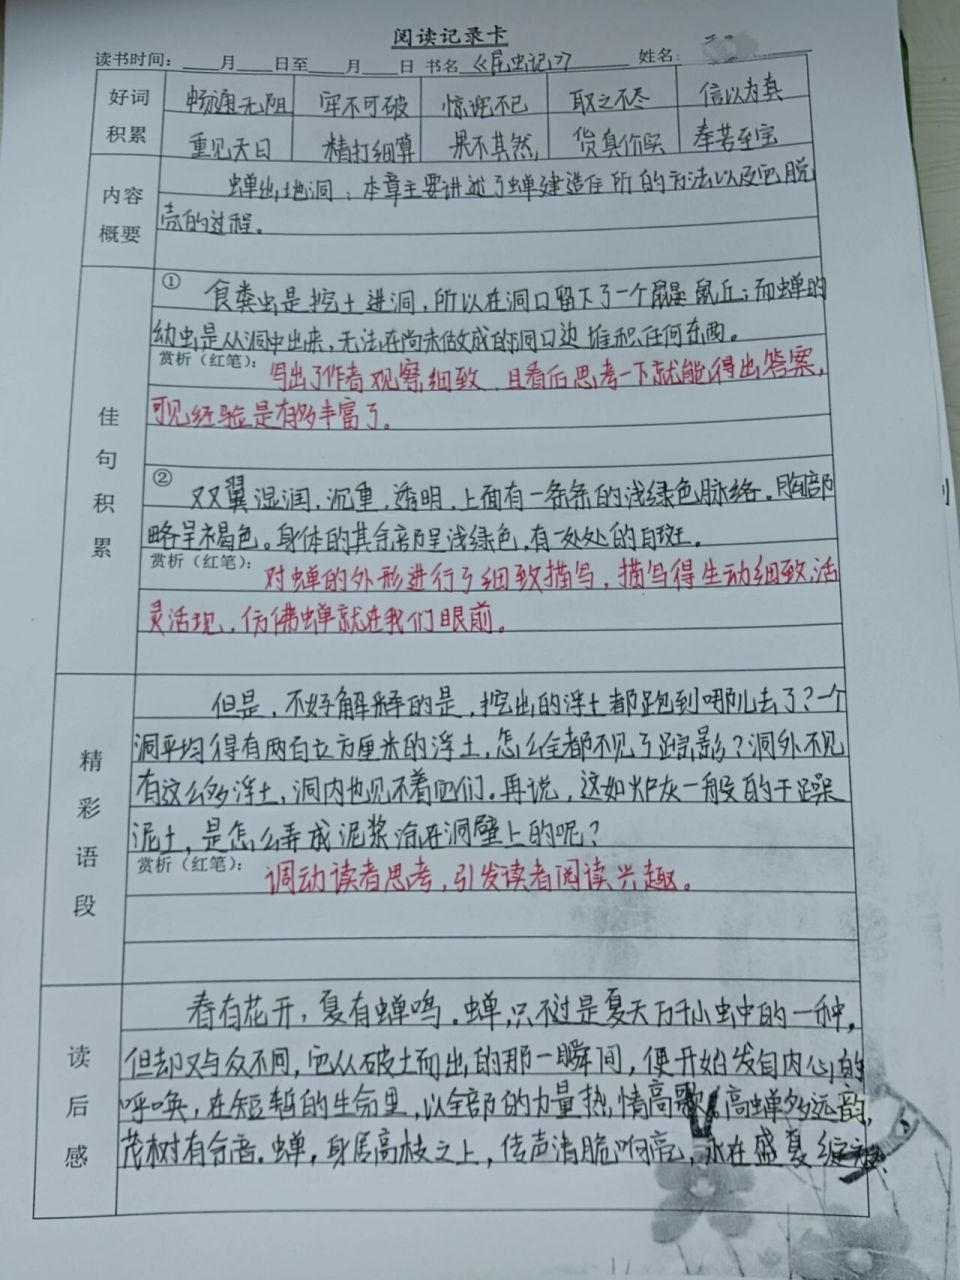 阅读记录卡
读书时间：____月____日至____月____日 书名《昆虫记》 姓名：
好词积累 畅通无阻 牢不可破 惊讶不已 取之不尽 信以为真
重见天日 精打细算 果不其然 货真价实 奉若至宝
内容概要 蝉出地洞：本章主要讲述了蝉建造住所的方法以及它脱
壳的过程。
佳句积累
① 食粪虫是挖土进洞，所以在洞口留下了一个鼹鼠丘；而蝉的
幼虫是从洞中出来，无法在尚未做成的洞口边堆积任何东西。
赏析（红笔）：写出了作者观察细致，且看后思考一下就能得出答案，
可见经验是有多丰富了。
② 双翼湿润，沉重，透明，上面有一条条的浅绿色脉络。胸部
略呈褐色。身体的其余部呈浅绿色，有一处处的白斑。
赏析（红笔）：对蝉的外形进行了细致描写，描写得生动细致，活
灵活现，仿佛蝉就在我们眼前。
精彩语段
但是，不好解释的是，挖出的浮土都跑到哪儿去了？一个
洞平均得有两百立方厘米的浮土，怎么全都不见了踪影？洞外不见
有这么多浮土，洞内也见不着它们。再说，这如炉灰一般的干躁
泥土，是怎么弄成泥浆涂在洞壁上的呢？
赏析（红笔）：调动读者思考，引发读者阅读兴趣。
读后感
春有花开，夏有蝉鸣。蝉，只不过是夏天万千小虫中的一种，
但却又与众不同，它从破土而出的那一瞬间，便开始发自内心的
呼唤，在短暂的生命里，以全部的力量热情高歌，高蝉多远韵，
茂树有余音。蝉，身居高枝之上，传声清脆响亮，永在盛夏绽